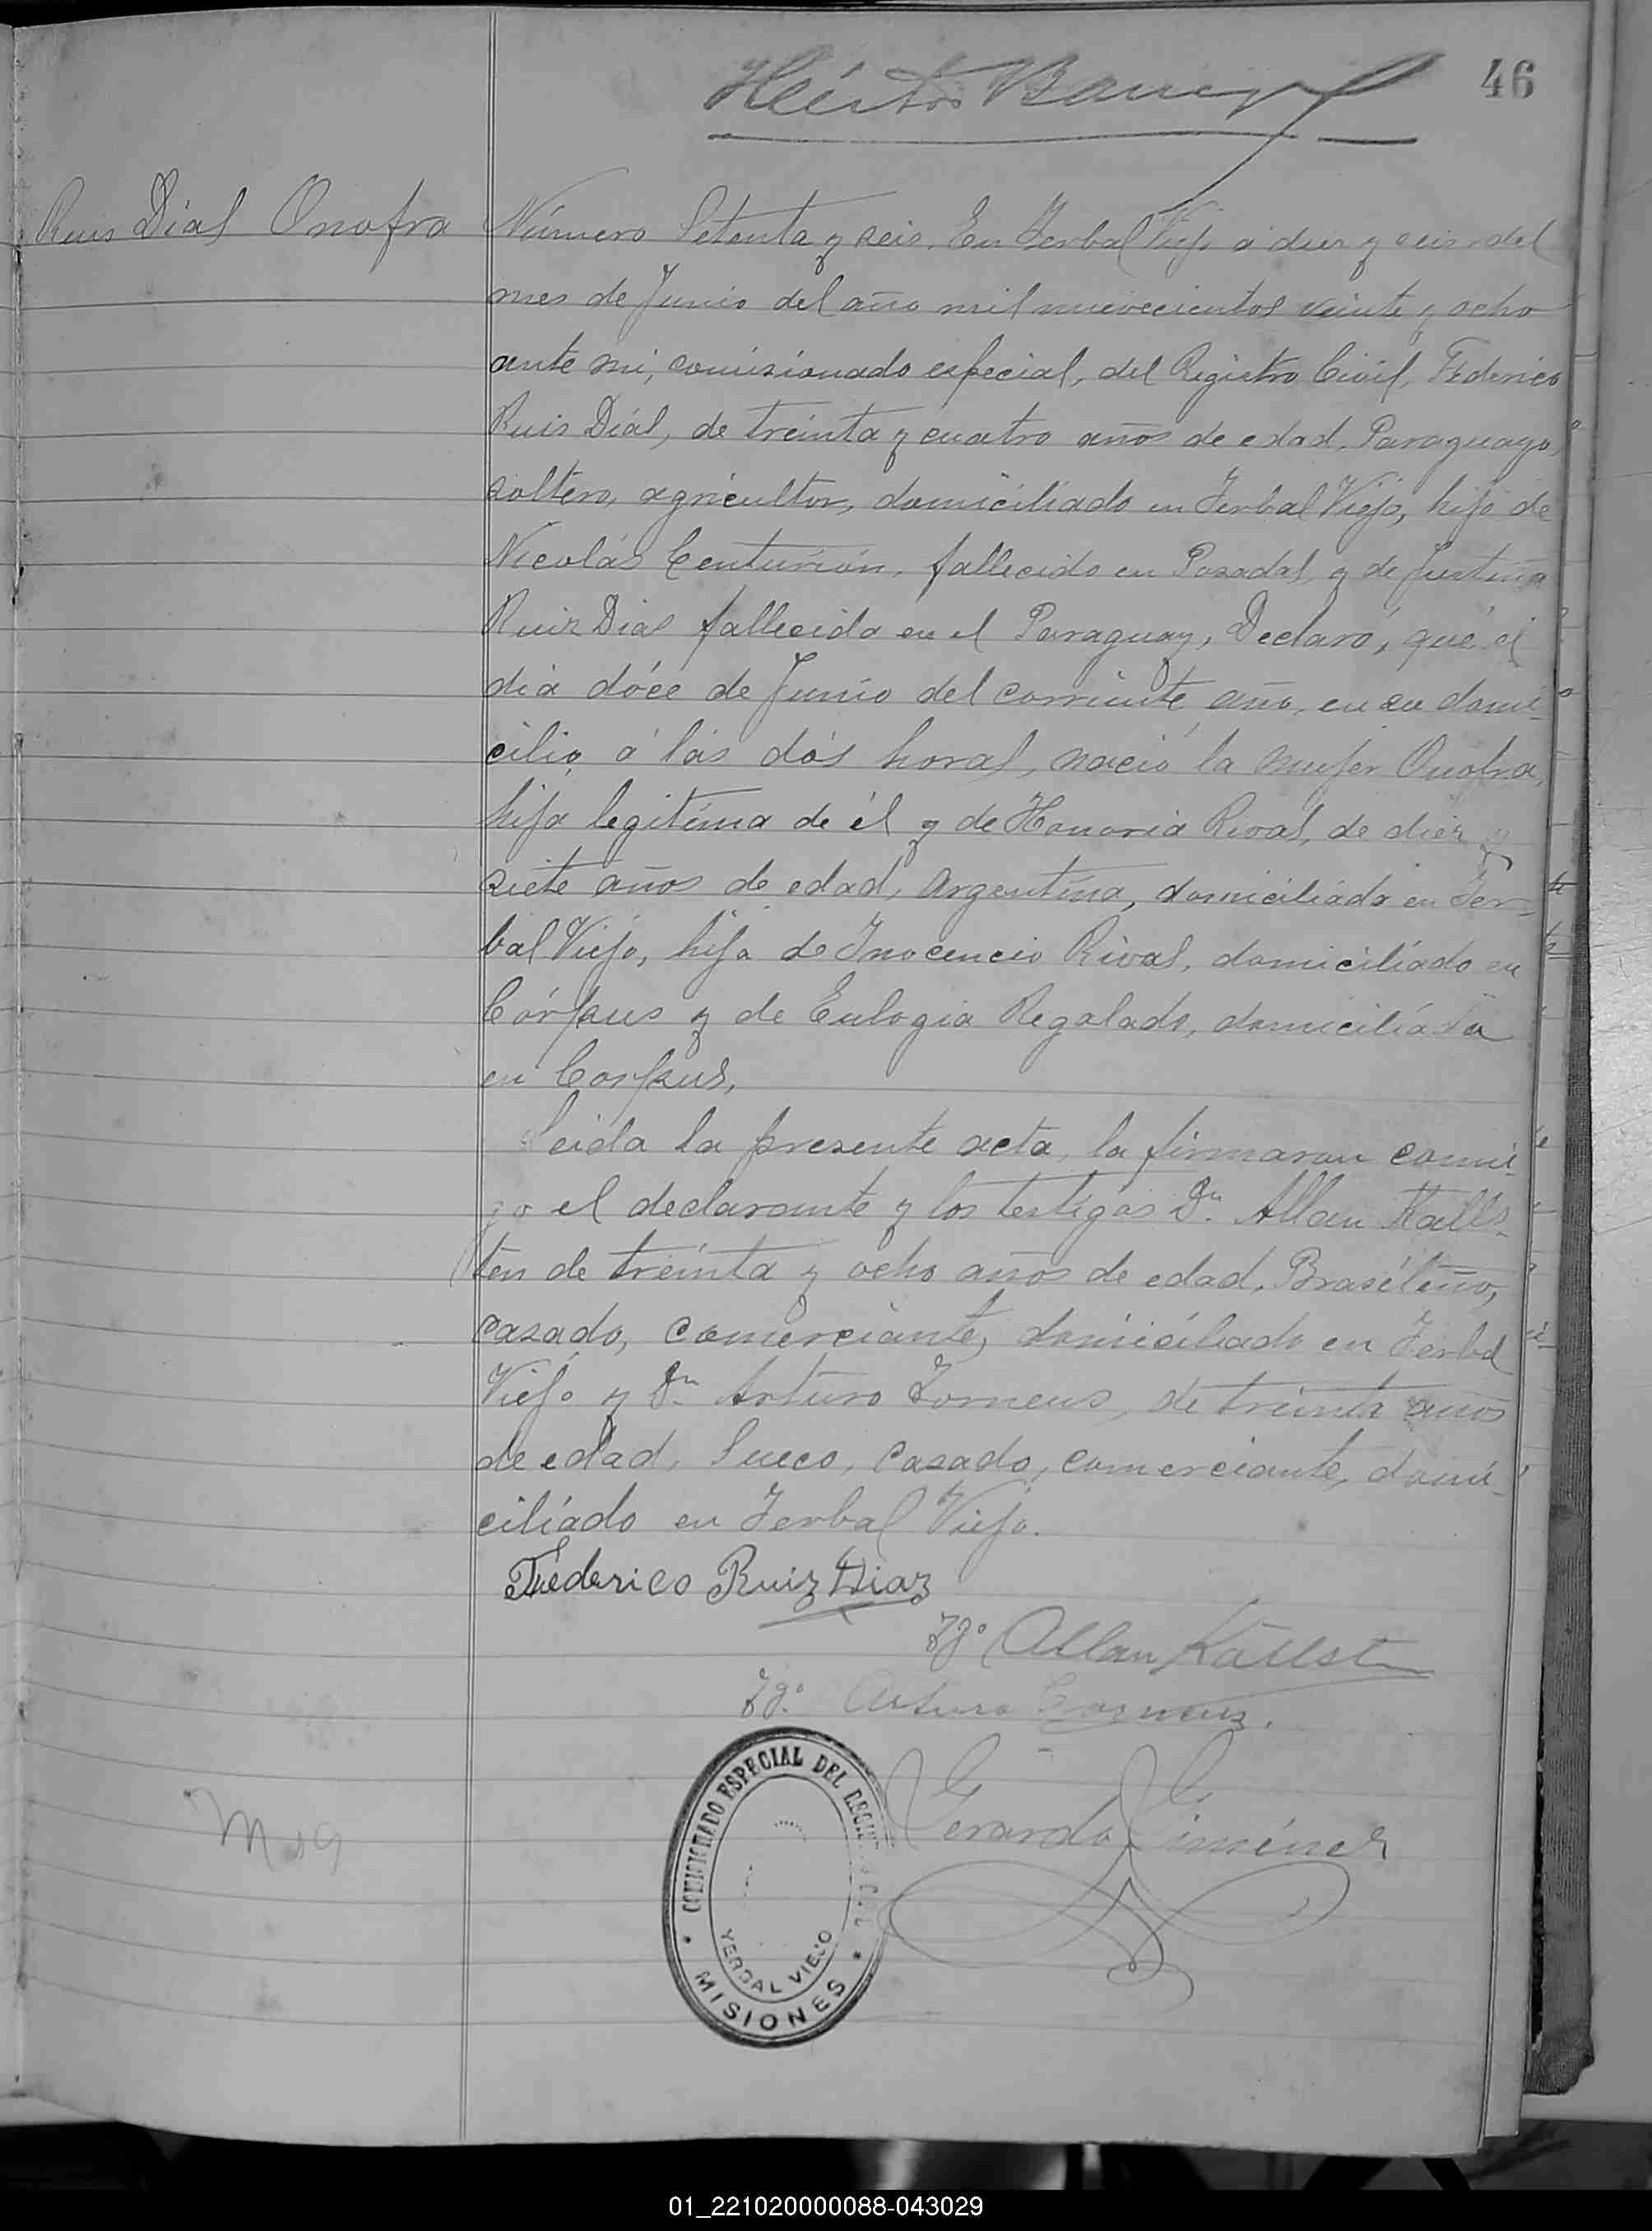 46
Héctor
Ruis Dias Onofra
Número Setenta y seis. En Yerbal Viejo a diez y seis del
mes de Junio del año mil nuevecientos veinte y ocho
ante mi, comisionado especial, del Registro Civil, Federico
Ruis Diás, de treinta y cuatro años de edad, Paraguayo,
soltero, agricultor, domiciliado en Yerbal Viejo, hijo de
Nicolás Centurión, fallecido en Posadas, y de Justina
Ruiz Dias fallecida en el Paraguay, Declaró, qué el
dia dóce de Junio del corriente año, en su domi-
cilio á lás dós horas, nació la mujer Onofra,
hija legitima de él y de Honoria Rivas, de diez y
siete años de edad, Argentina, domiciliada en Yer-
bal Viejo, hija de Inocencio Rivas, domiciliado en
Córpus y de Eulogia Regalado, domiciliada
en Corpus,
Leida la presente acta, la firmaron conmi-
go el declarante y los testigos Dn. Allan Kalls-
ten de treinta y ocho años de edad, Brasileño,
casado, comerciante, domiciliado en Yerbal
Viejo y Dn. Arturo Forneus, de treinta años
de edad, Sueco, casado, comerciante, domi-
ciliado en Yerbal Viejo.
Féderico Ruiz Diaz
Tgo. Allan Källst
Tgo. Arturo
Gerardo Giménez
COMISIONADO ESPECIAL DEL
YERBAL VIEJO
MISIONES
01_221020000088-043029